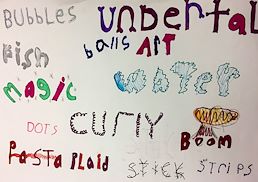 BUBBLES
UNDENTAL
balls ART
Fish
water
Magic
DOTS
CURLY
BOOM
PaSTa PLaiD
STICK
STRIPS